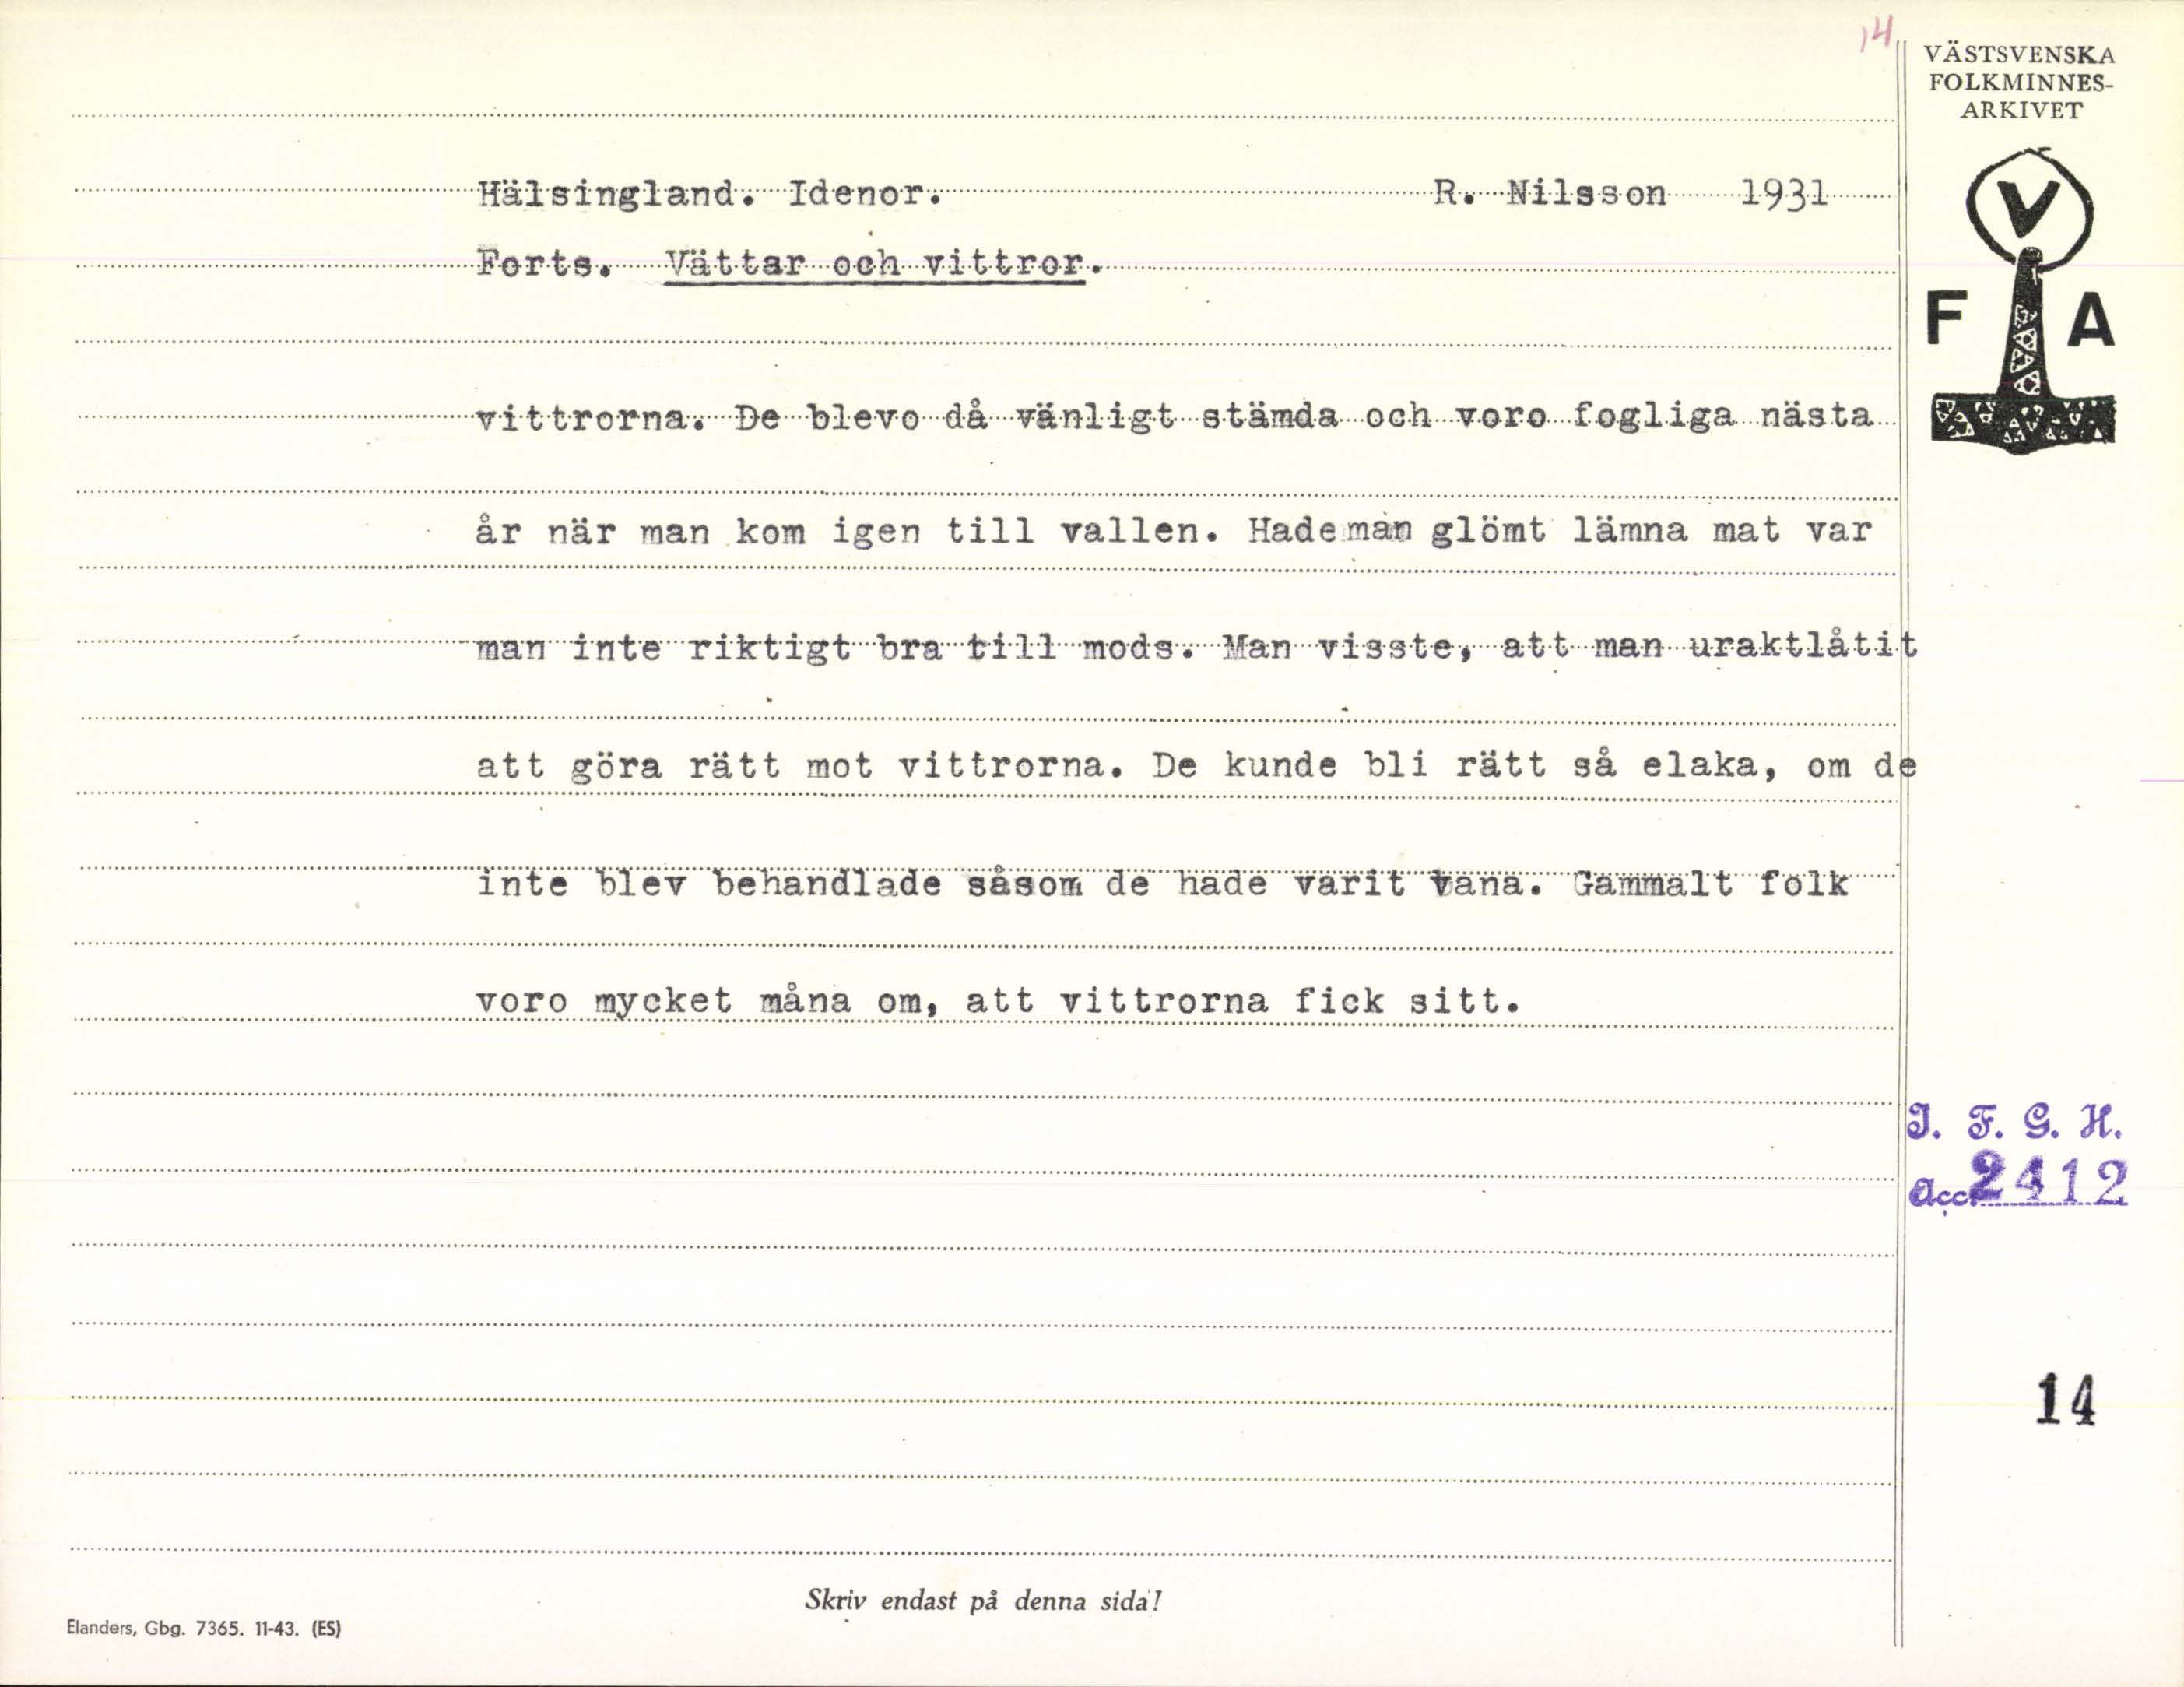 14
VÄSTSVENSKA
FOLKMINNES-
ARKIVET
Hälsingland. Idenor. R. Nilsson 1931
Forts. Vättar och vittror.
V
F A
vittrorna. De blevo då vänligt stämda och voro fogliga nästa
år när man kom igen till vallen. Hade man glömt lämna mat var
man inte riktigt bra till mods. Man visste, att man uraktlåtit
att göra rätt mot vittrorna. De kunde bli rätt så elaka, om de
inte blev behandlade såsom de hade varit vana. Gammalt folk
voro mycket måna om, att vittrorna fick sitt.
I. F. G. H.
Acc. 2412
14
Skriv endast på denna sida!
Elanders, Gbg. 7365. 11-43. (ES)